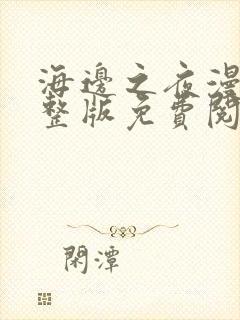 海邊之夜漫
整版免費閱
閑潭